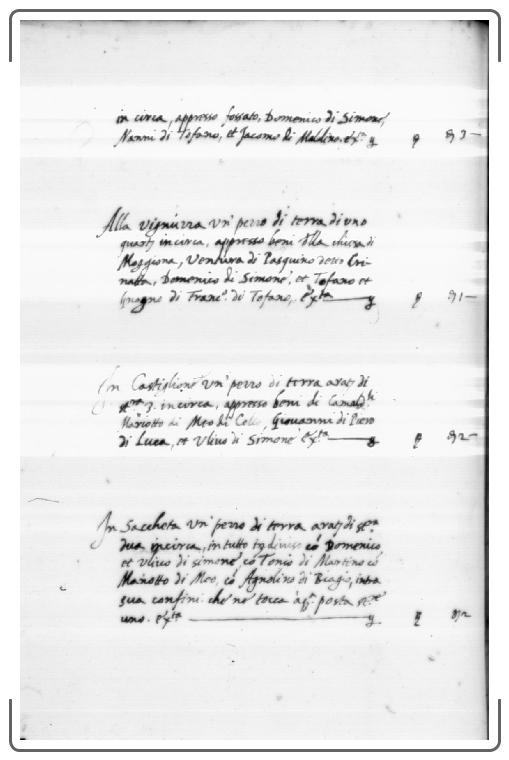 in circa, appresso fossato, Domenico di Simone,
Nanni di Tofano, et Jacomo di Maldino. ex.ta
Alla vignuzza un' pezzo di terra di uno
quarto incirca, appresso beni della chiesa di
Moggiona, Ventura di Pasquino detto Cri-
natta, Domenico di Simone, et Tofano et
Gnagno di Franc.o di Tofano, ex.ta
In Castiglione un' pezzo di terra arat.a di
st.re 3. incirca, appresso beni di Camald.li
Mariotto di Meo di Collo, Giovanni di Piero
di Luca, et Ulivo di Simone ex.ta
In Saccheta un' pezzo di terra arat.a di st.ra
dua incirca, in tutto indiviso cō Domenico
et Ulivo di Simone, cō Tonio di Martino cō
Mariotto di Meo, cō Agnolino di Biagio, intra
sua confini. che ne tocca à q.a posta st.re
uno. ex.ta